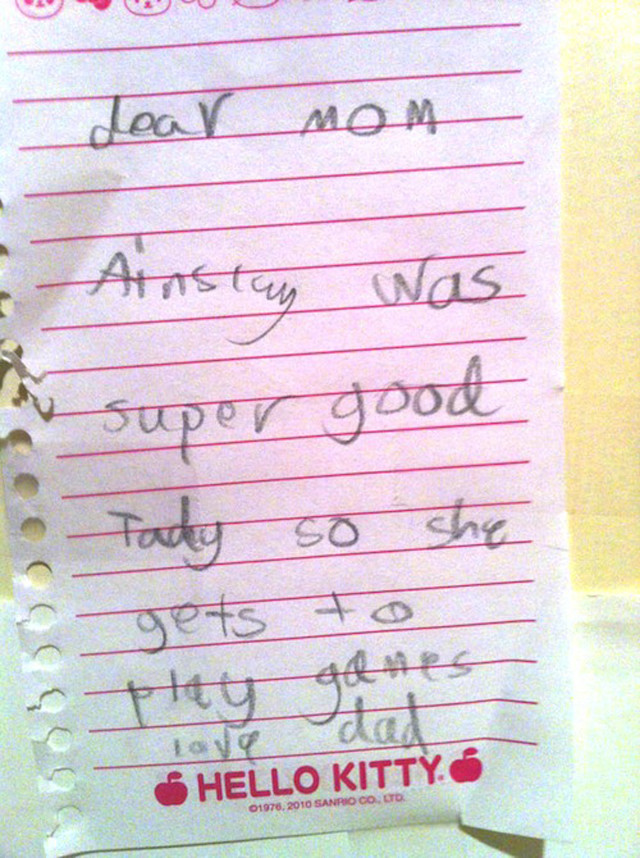 dear mom
Ainslay was
super good
Tady so she
gets to
play games
love dad
HELLO KITTY®
©1976, 2010 SANRIO CO., LTD.